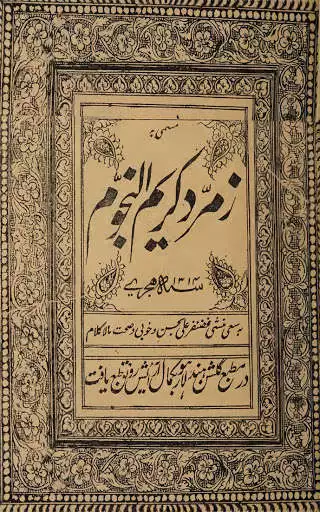 مسمی بہ
زمرّد کریم النجوّم
سنہ ۱۳۱۴ ہجریے
بہ سعی منشی غضنفر علی بحسن و خوبی و صحت مالاکلام
در مطبع گلشن ہند لاہور بکمال آرایش رونق طبع یافت